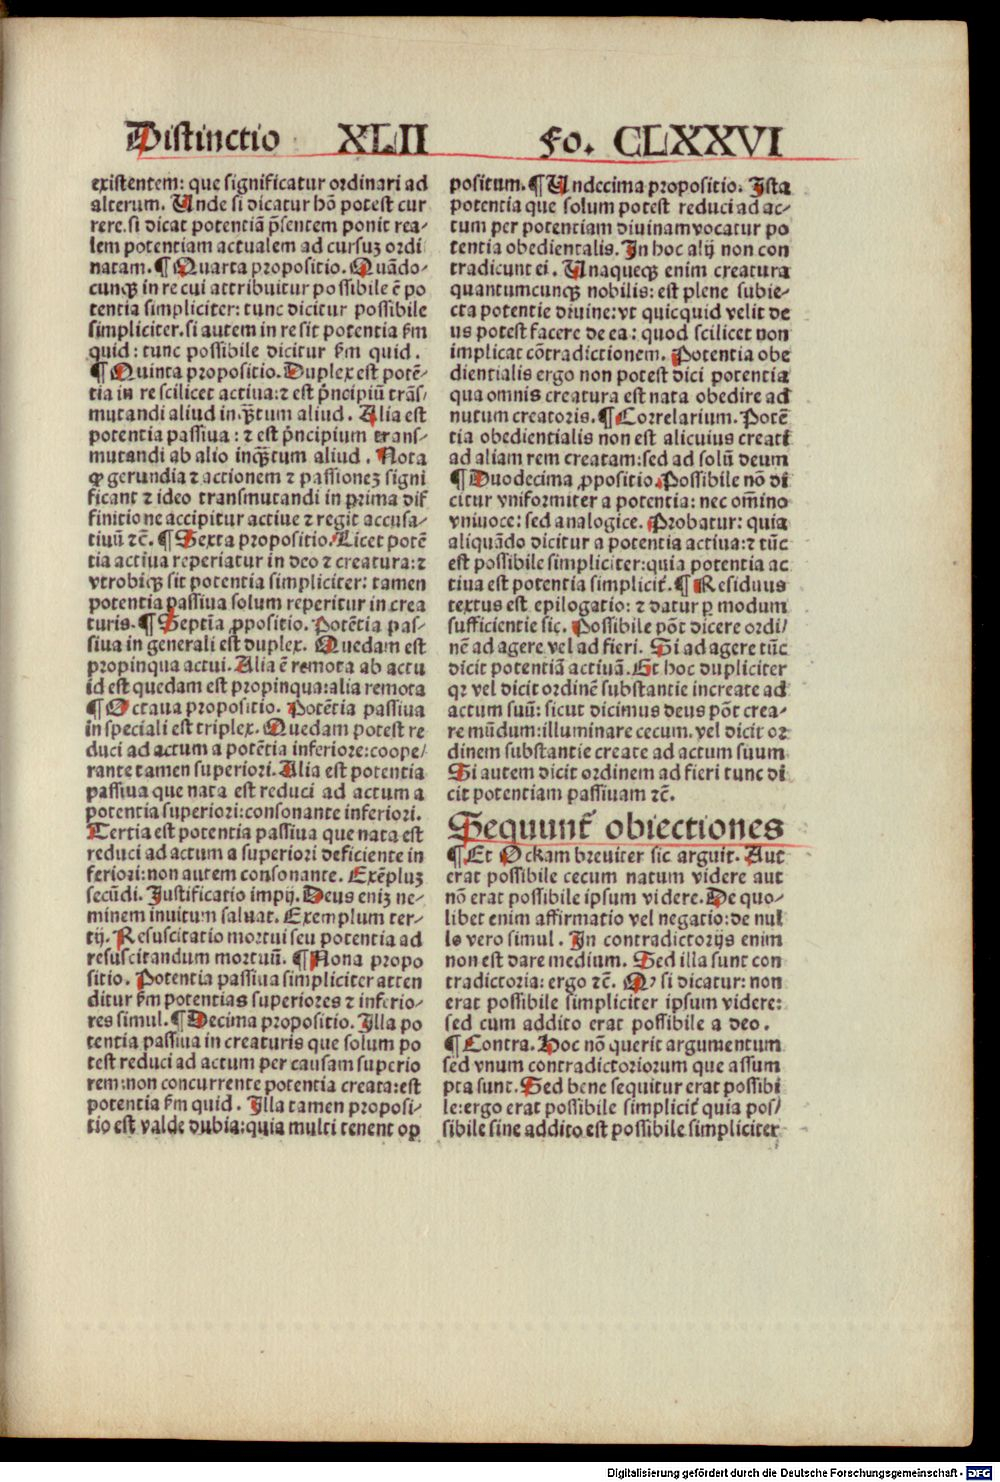 Distinctio XLII Fo. CLXXVI
existentem: que significatur ordinari ad
alterum. Unde si dicatur hō potest cur
rere. si dicat potentiā p̄sentem ponit rea-
lem potentiam actualem ad cursuȝ ordi
natam. ¶ Quarta propositio. Quādo-
cunqꝫ in re cui attribuitur possibile ē po
tentia simpliciter: tunc dicitur possibile
simpliciter. si autem in re sit potentia ẜm
quid: tunc possibile dicitur ẜm quid.
¶ Quinta propositio. Duplex est potē-
tia in re scilicet activa: ⁊ est p̄ncipiū trās-
mutandi aliud inqꝫtum aliud. Alia est
potentia passiva: ⁊ est p̄ncipium trans-
mutandi ab alio inqꝫtum aliud. Nota
ꝙ gerundia ⁊ actionem ⁊ passioneȝ signi
ficant ⁊ ideo transmutandi in prima dif
finitione accipitur actiue ⁊ regit accusa-
tiuū ⁊c̄. ¶ Sexta propositio. Licet potē
tia actiua reperiatur in deo ⁊ creatura: ⁊
vtrobiqꝫ sit potentia simpliciter: tamen
potentia passiua solum reperitur in crea
turis. ¶ Septīa ꝓpositio. Potētia pas-
siua in generali est duplex. Quedam est
propinqua actui. Alia ē remota ab actu
id est quedam est propinqua: alia remota
¶ Octaua propositio. Potētia passiua
in speciali est triplex. Quedam potest re
duci ad actum a potētia inferiore: coope/
rante tamen superiori. Alia est potentia
passiua que nata est reduci ad actum a
potentia superiori: consonante inferiori.
Tertia est potentia passiua que nata est
reduci ad actum a superiori deficiente in
feriori: non autem consonante. Exēpluȝ
secūdi. Justificatio impij. Deus eniȝ ne-
minem inuitum saluat. Exemplum ter-
tij. Resuscitatio mortui seu potentia ad
resuscitandum mortuū. ¶ Nona propo
sitio. Potentia passiua simpliciter atten
ditur ẜm potentias superiores ⁊ inferio-
res simul. ¶ Decima propositio. Illa po
tentia passiua in creaturis que solum po
test reduci ad actum per causam superio
rem: non concurrente potentia creata: est
potentia ẜm quid. Illa tamen proposi-
tio est valde dubia: quia multi tenent op
positum. ¶ Undecima propositio. Ista
potentia que solum potest reduci ad ac-
tum per potentiam diuinam vocatur po
tentia obedientalis. In hoc alij non con
tradicunt ei. Unaqueqꝫ enim creatura
quantumcunqꝫ nobilis: est plene subie-
cta potentie diuine: vt quicquid velit de
us potest facere de ea: quod scilicet non
implicat cōtradictionem. Potentia obe
dientialis ergo non potest dici potentia
qua omnis creatura est nata obedire ad
nutum creatoris. ¶ Correlarium. Potē
tia obedientialis non est alicuius creati
ad aliam rem creatam: sed ad solū deum
¶ Duodecima ꝓpositio. Possibile nō di
citur vniformiter a potentia: nec om̄ino
vniuoce: sed analogice. Probatur: quia
aliquādo dicitur a potentia actiua: ⁊ tūc
est possibile simpliciter: quia potentia ac
tiua est potentia simplicit̄. ¶ Residuus
textus est epilogatio: ⁊ datur ꝑ modum
sufficientie sic. Possibile pōt dicere ordi/
nē ad agere vel ad fieri. Si ad agere tūc
dicit potentiā actiuā. Et hoc dupliciter
qꝛ vel dicit ordinē substantie increate ad
actum suū: sicut dicimus deus pōt crea-
re mūdum: illuminare cecum. vel dicit or
dinem substantie create ad actum suum
Si autem dicit ordinem ad fieri tunc di
cit potentiam passiuam ⁊c̄.
Sequunt̄ obiectiones
¶ Et Ockam breuiter sic arguit. Aut
erat possibile cecum natum videre aut
nō erat possibile ipsum videre. De quo-
libet enim affirmatio vel negatio: de nul
lo vero simul. In contradictorijs enim
non est dare medium. Sed illa sunt con
tradictoria: ergo ⁊c̄. Qꝫ si dicatur: non
erat possibile simpliciter ipsum videre:
sed cum addito erat possibile a deo.
¶ Contra. Hoc nō querit argumentum
sed vnum contradictoriorum que assum
pta sunt. Sed bene sequitur erat possibi
le: ergo erat possibile simplicit̄ quia pos/
sibile sine addito est possibile simpliciter
Digitalisierung gefördert durch die Deutsche Forschungsgemeinschaft - DFG